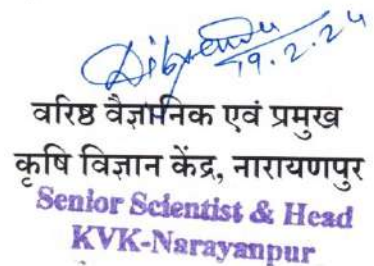 Dibyendu
19.2.24
वरिष्ठ वैज्ञानिक एवं प्रमुख
कृषि विज्ञान केंद्र, नारायणपुर
Senior Scientist & Head
KVK-Narayanpur